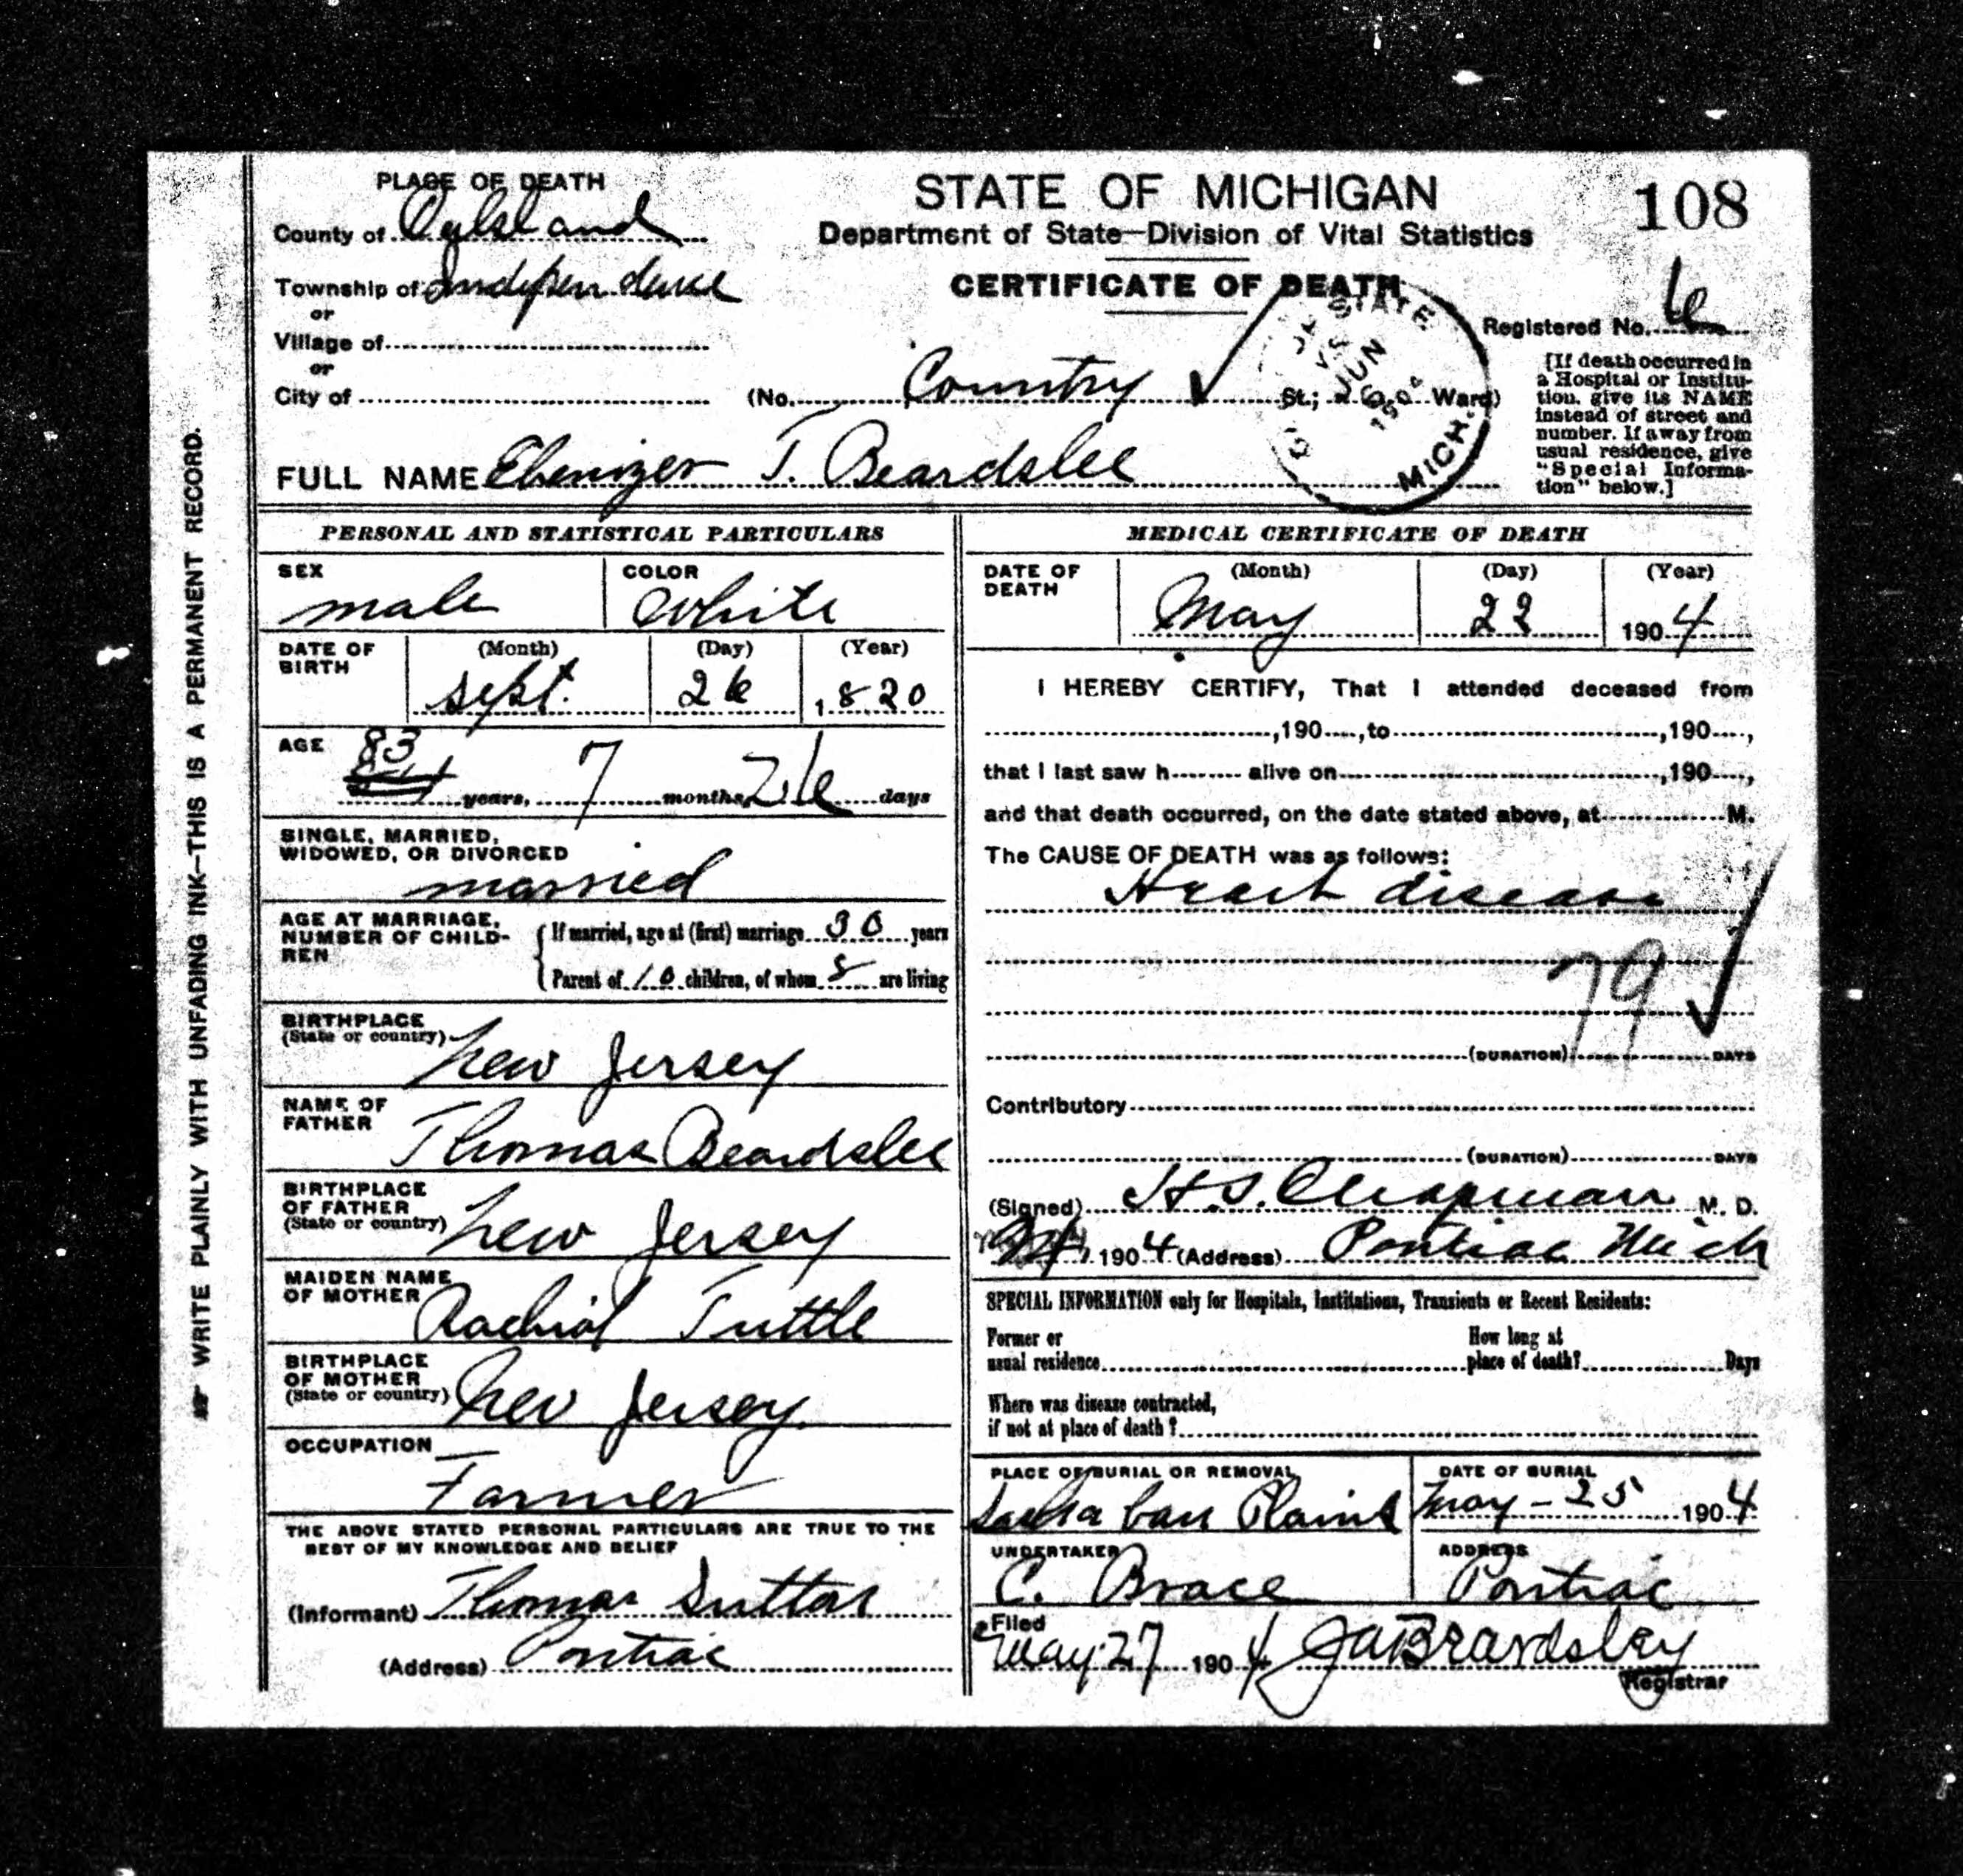 108
PLACE OF DEATH
County of Oakland
Township of Independence
or
Village of
or
City of
STATE OF MICHIGAN
Department of State—Division of Vital Statistics
CERTIFICATE OF DEATH
Registered No. 6
(No. Country St.; Ward)
STATE
JUN
6
190
MICH.
[If death occurred in
a Hospital or Institu-
tion, give its NAME
instead of street and
number. If away from
usual residence, give
"Special Informa-
tion" below.]
FULL NAME Ebenizer T. Beardslee
WRITE PLAINLY WITH UNFADING INK—THIS IS A PERMANENT RECORD.
PERSONAL AND STATISTICAL PARTICULARS
SEX
male
COLOR
White
DATE OF
BIRTH
(Month) (Day) (Year)
Sept. 26 1820
AGE
83
years, 7 months, 26 days
SINGLE, MARRIED,
WIDOWED, OR DIVORCED
married
AGE AT MARRIAGE,
NUMBER OF CHILD-
REN
If married, age at (first) marriage 30 years
Parent of 10 children, of whom 8 are living
BIRTHPLACE
(State or country)
New Jersey
NAME OF
FATHER
Thomas Beardslee
BIRTHPLACE
OF FATHER
(State or country)
New Jersey
MAIDEN NAME
OF MOTHER
Rachial Tuttle
BIRTHPLACE
OF MOTHER
(State or country)
New Jersey.
OCCUPATION
Farmer
THE ABOVE STATED PERSONAL PARTICULARS ARE TRUE TO THE
BEST OF MY KNOWLEDGE AND BELIEF
(Informant) Thomas
(Address) Pontiac
MEDICAL CERTIFICATE OF DEATH
DATE OF
DEATH
(Month) (Day) (Year)
May 22 1904
I HEREBY CERTIFY, That I attended deceased from
,190 , to ,190 ,
that I last saw h alive on ,190 ,
and that death occurred, on the date stated above, at M.
The CAUSE OF DEATH was as follows:
Heart disease
79
(DURATION) DAYS
Contributory
(DURATION) DAYS
(Signed) H.S. Chapman M. D.
1904 (Address) Pontiac Mich
SPECIAL INFORMATION only for Hospitals, Institutions, Transients or Recent Residents:
Former or
usual residence
How long at
place of death? Days
Where was disease contracted,
if not at place of death?
PLACE OF BURIAL OR REMOVAL
Plains
DATE OF BURIAL
May - 25 1904
UNDERTAKER
C. Brace
ADDRESS
Pontiac
Filed
May 27 1904 JABeardsley
Registrar